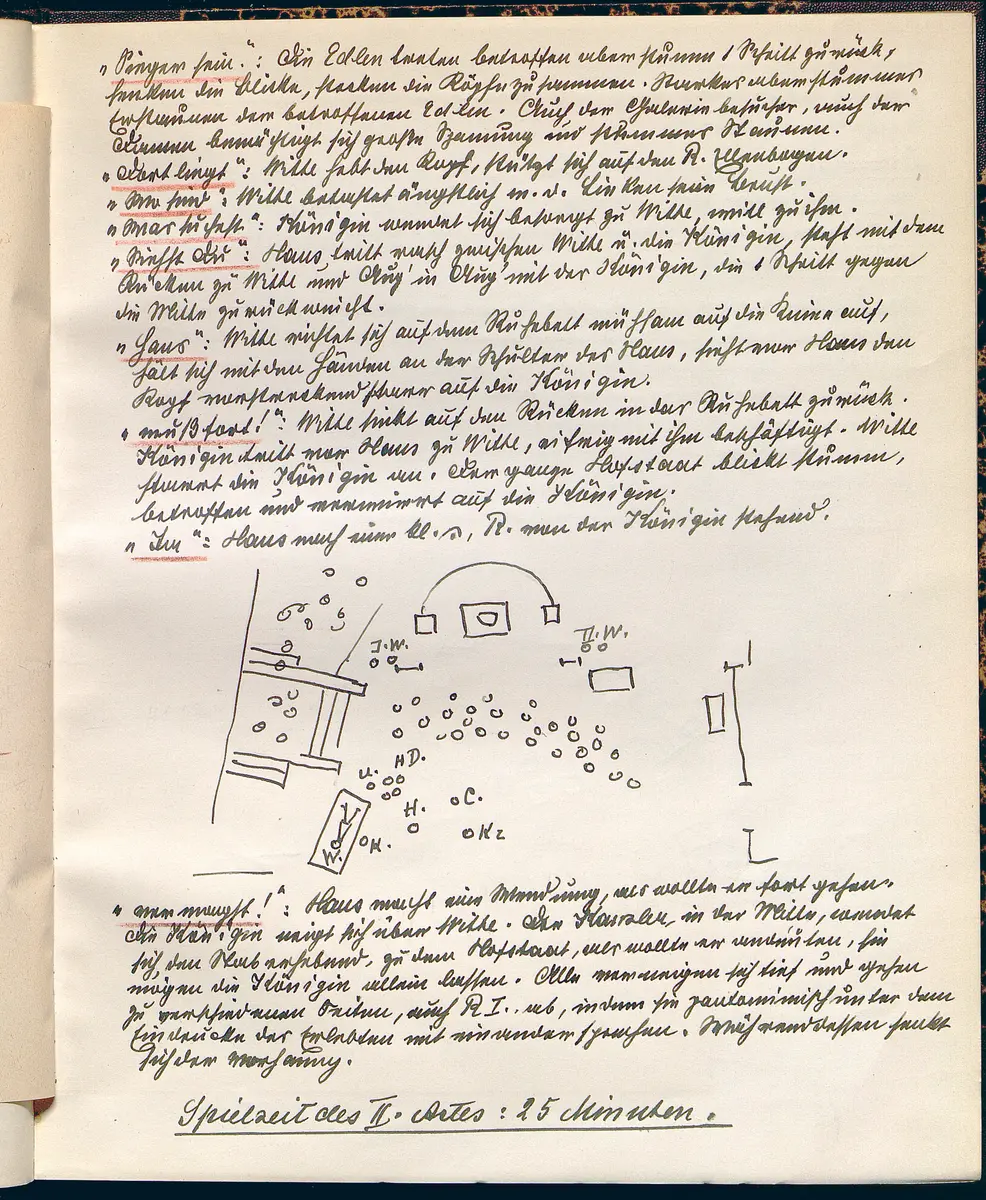 „Sieger sein.": Die Edlen treten betroffen aber stumm 1 Schritt zurück,
senken die Blicke, stecken die Köpfe zusammen. Starkes aber stummes
Erstaunen der betroffenen Edlen. Auch der Galeriebesucher, auch der
Damen bemächtigt sich große Spannung und stummes Staunen.
„Dort liegt": Witte hebt den Kopf, stützt sich auf den R. Ellenbogen.
„Wo sind": Witte betastet ängstlich m. d. Linken seine Brust.
„Was suchest": Königin wendet sich besorgt zu Witte, will zu ihm.
„Siehst Du": Hans tritt rasch zwischen Witte u. die Königin, steht mit dem
Rücken zu Witte und Aug' in Aug' mit der Königin, die 1 Schritt gegen
die Mitte zurückweicht.
„Hans": Witte richtet sich auf dem Ruhebett mühsam auf die Kniee auf,
hält sich mit den Händen an der Schulter des Hans, sieht vor Hans den
Kopf vorstreckend starr auf die Königin.
„muß fort!": Witte sinkt auf den Rücken in das Ruhebett zurück.
Königin tritt vor Hans zu Witte, eifrig mit ihm beschäftigt. Witte
starrt die Königin an. Der ganze Hofstaat blickt stumm,
betroffen und verwirrt auf die Königin.
„Im": Hans nach einer kl. , R. von der Königin stehend.
I.W. II.W.
U. HD.
H. C.
K. Kz
„vermagst!": Hans macht eine Wendung, als wollte er fort gehen.
Die Königin neigt sich über Witte. Der Kanzler, in der Mitte, wendet
sich, den Stab erhebend, zu dem Hofstaat, als wollte er andeuten, sie
mögen die Königin allein lassen. Alle verneigen sich tief und gehen
zu verschiedenen Seiten, auch R I. ab, indem sie pantomimisch unter dem
Eindrucke des Erlebten mit einander sprechen. Währenddessen senkt
sich der Vorhang.
Spielzeit des II. Actes: 25 Minuten.